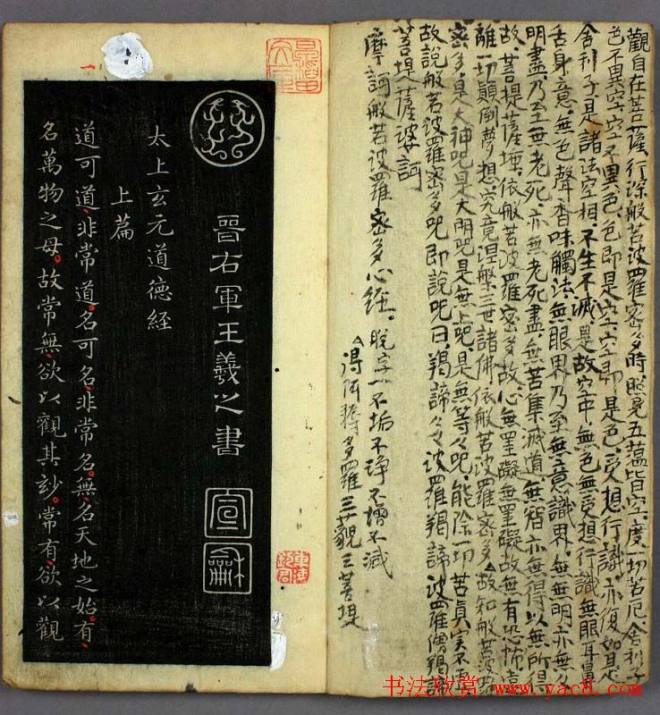 觀自在菩薩行深般若波羅密多時照見五蘊皆空度一切苦厄舍利子
色不異空空不異色色即是空空即是色受想行識亦復如是
舍利子是諸法空相不生不滅是故空中無色無受想行識無眼耳鼻
舌身意無色聲香味觸法無眼界乃至無意識界無無明亦無無
明盡乃至無老死亦無老死盡無苦集滅道無智亦無得以無所得
故菩提薩埵依般若波羅密多故心無罣礙無罣礙故無有恐怖遠
離一切顛倒夢想究竟涅槃三世諸佛依般若波羅密多故知般若波羅
密多是大神呪是大明呪是無上呪是無等々呪能除一切苦真實不虛
故說般若波羅密多呪即說呪曰羯諦々々波羅羯諦波羅僧羯諦
菩提薩婆訶
摩訶般若波羅密多心經 脫字一不垢不淨不增不減
得阿耨多羅三藐三菩提
晉右軍王羲之書
宣龢
太上玄元道德経
上篇
道可道非常道名可名非常名無名天地之始有
名萬物之母故常無欲以觀其妙常有欲以觀
书法欣赏 www.yac8.com